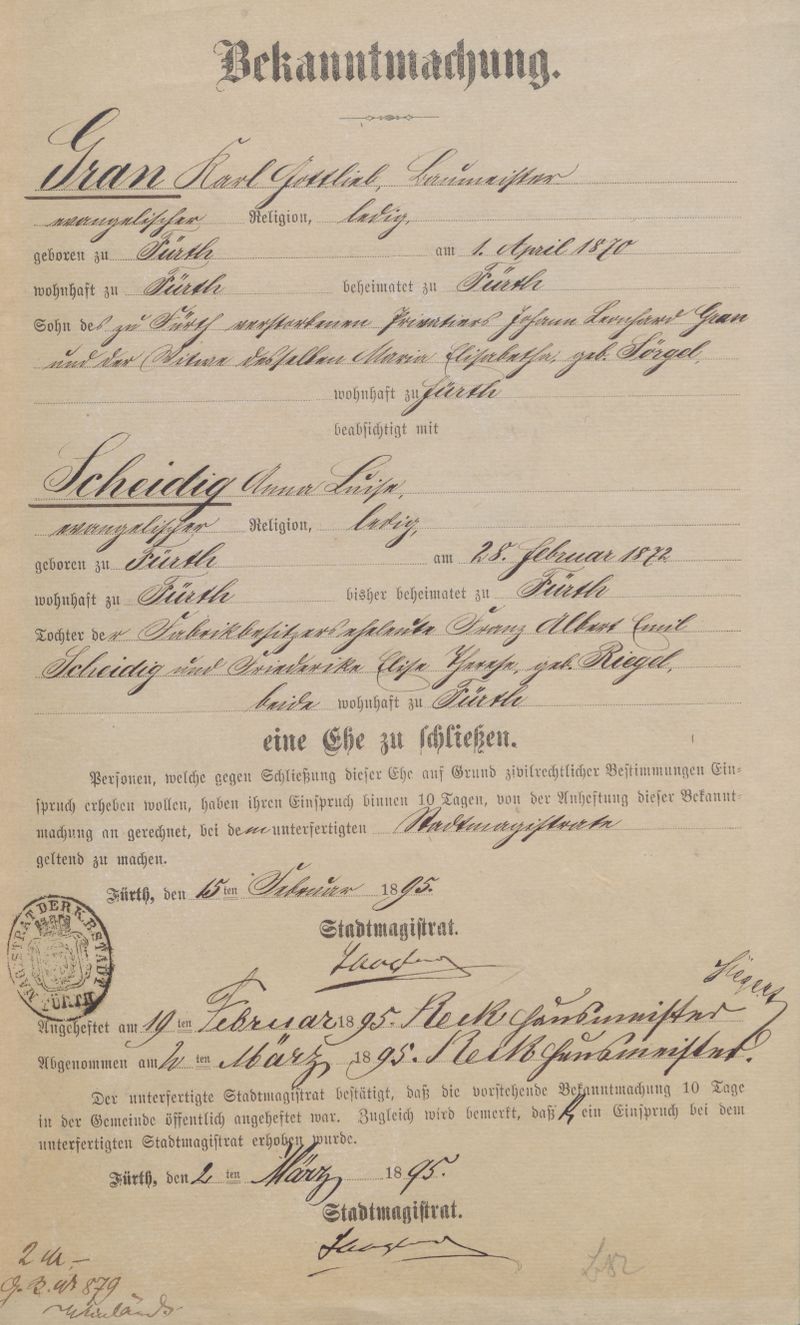 Bekanntmachung.
Gran Karl Gottlieb, Baumeister
evangelischer Religion, ledig,
geboren zu Fürth am 1. April 1870
wohnhaft zu Fürth beheimatet zu Fürth
Sohn des zu Fürth verstorbenen Privatiers Johann Leonhard Gran
und der Witwe desselben Maria Elisabetha, geb. Sörgel,
wohnhaft zu Fürth
beabsichtigt mit
Scheidig Anna Luise,
evangelischer Religion, ledig,
geboren zu Fürth am 28. Februar 1872
wohnhaft zu Fürth bisher beheimatet zu Fürth
Tochter der Fabrikbesitzerseheleute Franz Albert Emil
Scheidig und Friederike Elise Therese, geb. Riegel,
beide wohnhaft zu Fürth
eine Ehe zu schließen.
Personen, welche gegen Schließung dieser Ehe auf Grund zivilrechtlicher Bestimmungen Ein-
spruch erheben wollen, haben ihren Einspruch binnen 10 Tagen, von der Anheftung dieser Bekannt-
machung an gerechnet, bei dem unterfertigten Stadtmagistrate
geltend zu machen.
Fürth, den 15 ten Februar 1895.
Stadtmagistrat.
MAGISTRAT DER K.B. STADT FÜRTH
Angeheftet am 19 ten Februar 1895. Keck Hausmeister
Abgenommen am 2 ten März 1895. Keck Hausmeister.
Der unterfertigte Stadtmagistrat bestätigt, daß die vorstehende Bekanntmachung 10 Tage
in der Gemeinde öffentlich angeheftet war. Zugleich wird bemerkt, daß kein Einspruch bei dem
unterfertigten Stadtmagistrat erhoben wurde.
Fürth, den 2 ten März 1895.
Stadtmagistrat.
2 M.-
879